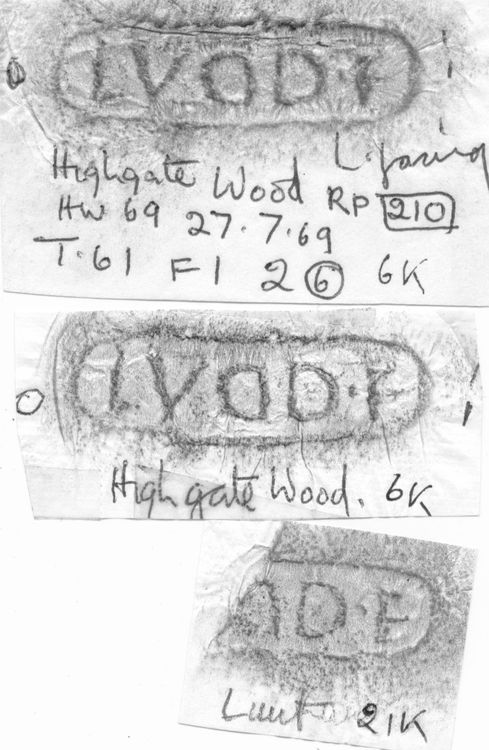 LVOD·F
Highgate Wood L. facing
HW 69 27·7·69 RP 210
T·61 F1 2 6 6K
LVOD·F
Highgate Wood. 6K
D·F
21K